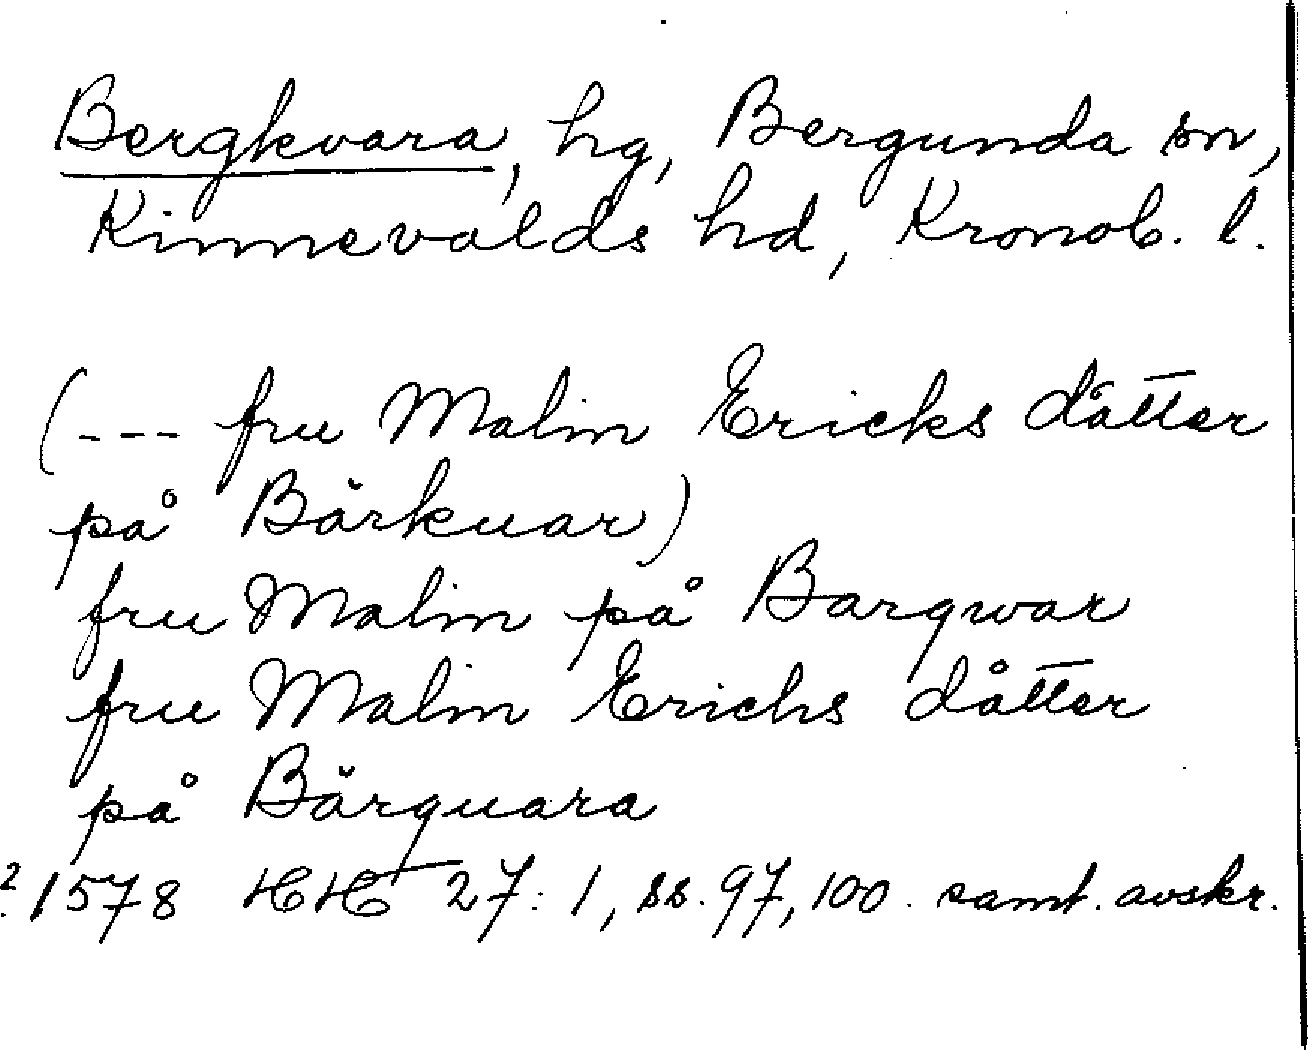 Bergkvara, hg, Bergunda sn,
Kinnevalds hd, Kronob. l.
(--- fru Malin Ericks dåtter
på Bärkuar)
fru Malin på Barqwar
fru Malin Erichs dåtter
på Bärquara
2 1578 HH 27:1, ss. 97, 100. samt. avskr.